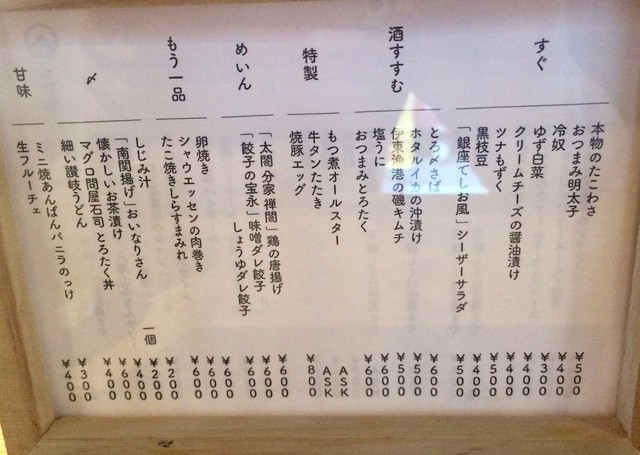 すぐ
本物のたこわさ ¥500
おつまみ明太子 ¥400
冷奴 ¥300
ゆず白菜 ¥400
クリームチーズの醤油漬け ¥400
ツナもずく ¥500
黒枝豆 ¥400
「銀座てしお風」シーザーサラダ ¥500
酒すすむ
とろ〆さば ¥600
ホタルイカの沖漬け ¥500
伊東漁港の磯キムチ ¥500
塩うに ¥600
おつまみとろたく ¥600
特製
もつ煮オールスター ASK
牛タンたたき ASK
焼豚エッグ ¥800
めいん
「太閤分家 禅閤」鶏の唐揚げ ¥600
「餃子の宝永」味噌ダレ餃子 ¥600
しょうゆダレ餃子 ¥600
もう一品
卵焼き ¥600
シャウエッセンの肉巻き ¥600
たこ焼きしらすまみれ ¥600
〆
しじみ汁 ¥200
「南関揚げ」おいなりさん 一個 ¥200
懐かしいお茶漬け ¥400
マグロ問屋石司とろたく丼 ¥600
細い讃岐うどん ¥400
甘味
ミニ焼あんぱんバニラのっけ ¥300
生フルーチェ ¥400